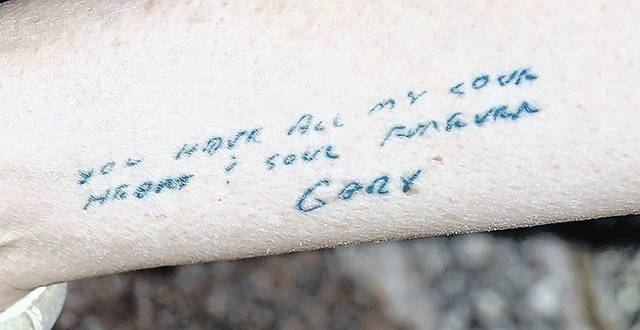 YOU HAVE ALL MY LOVE
HEART & SOUL FOREVER
GARY